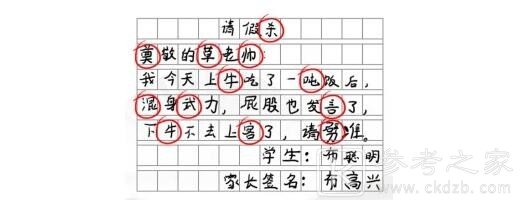 请假杀
奠敬的草老师:
我今天上牛吃了一吨饭后,
混身武力,屁股也发言了,
下牛不去上客了,请努准。
学生:布聪明
家长签名:布高兴
参考之家
www.ckdzb.com